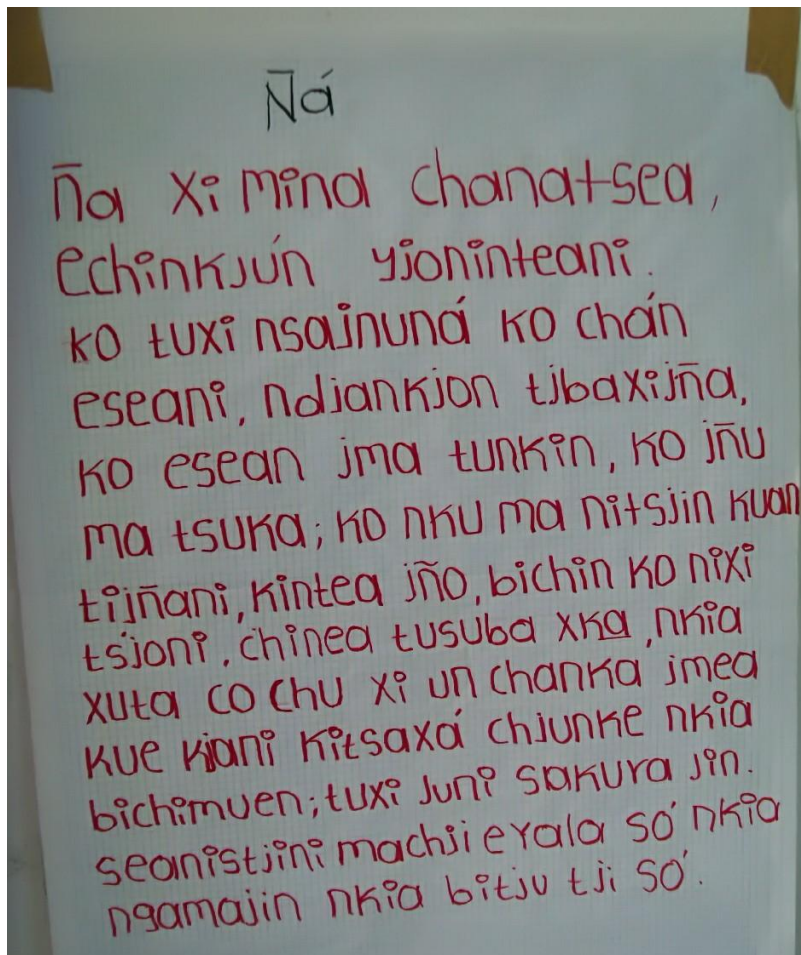 Ñá
ña xi mina chanatsea,
echinkjún yjoninteani.
ko tuxi nsajnuná ko chán
eseani, ndjankjon tjbaxijña,
ko esean jma tunkin, ko jñu
ma tsuka; ko nku ma nitsjin kuan
tijñani, kintea jño, bichin ko nixi
tsjoni, chinea tusuba xka, nkia
xuta co chu xi un chanka jmea
kue kjani kitsaxá chjunke nkia
bichimuen; tuxi juni sakura jin.
seanistjini machji erala só nkia
ngamajin nkia bitju tji só.